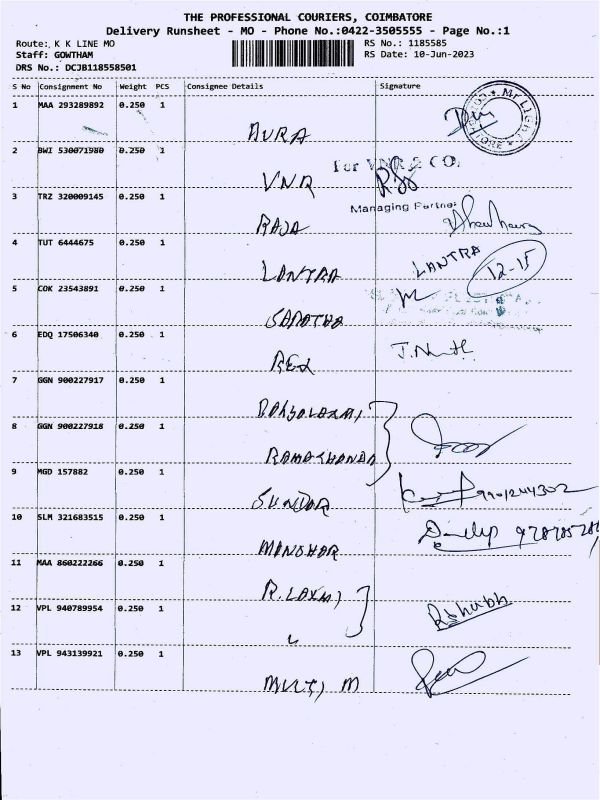 THE PROFESSIONAL COURIERS, COIMBATORE
Delivery Runsheet - MO - Phone No.:0422-3505555 - Page No.:1
Route: K K LINE MO
Staff: GOWTHAM
DRS No.: DCJB118558501
RS No.: 1185585
RS Date: 10-Jun-2023
S No Consignment No Weight PCS Consignee Details Signature
1 MAA 293289892 0.250 1
AURA
Mr Light
2 BWI 530071980 0.250 1
VNR
For VNR & CO.
Managing Partner
3 TRZ 320009145 0.250 1
RAJA
4 TUT 6444675 0.250 1
LANTRA
LANTRA 12-15
5 COK 23543891 0.250 1
6 EDQ 17506340 0.250 1
REX
7 GGN 900227917 0.250 1
8 GGN 900227918 0.250 1
9 MGD 157882 0.250 1
SUNDAR
10 SLM 321683515 0.250 1
MANOHAR
Dandip
11 MAA 860222266 0.250 1
R. LAXMI
12 VPL 940789954 0.250 1
Rshubh
13 VPL 943139921 0.250 1
MULTI M